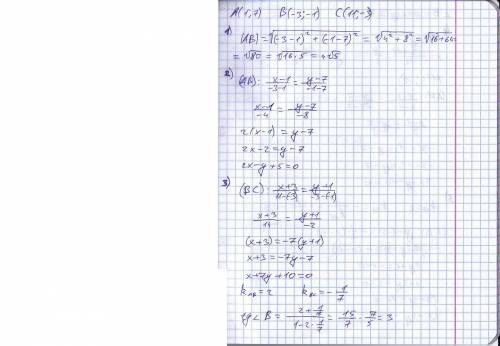 A(1,7) B(-3;-1) C(11;-3)
1) |AB| = √(-3-1)² + (-1-7)² = √4² + 8² = √16+64
= √80 = √16·5 = 4√5
2) (AB): x-1/-3-1 = y-7/-1-7
x-1/-4 = y-7/-8
2(x-1) = y-7
2x-2 = y-7
2x-y+5=0
3) (BC): x+3/11-(-3) = y+1/-3-(-1)
x+3/14 = y+1/-2
(x+3) = -7(y+1)
x+3 = -7y-7
x+7y+10=0
k = 2 k = -1/7
tg∠B = 2+1/7 / 1-2·1/7 = 15/7 · 7/5 = 3